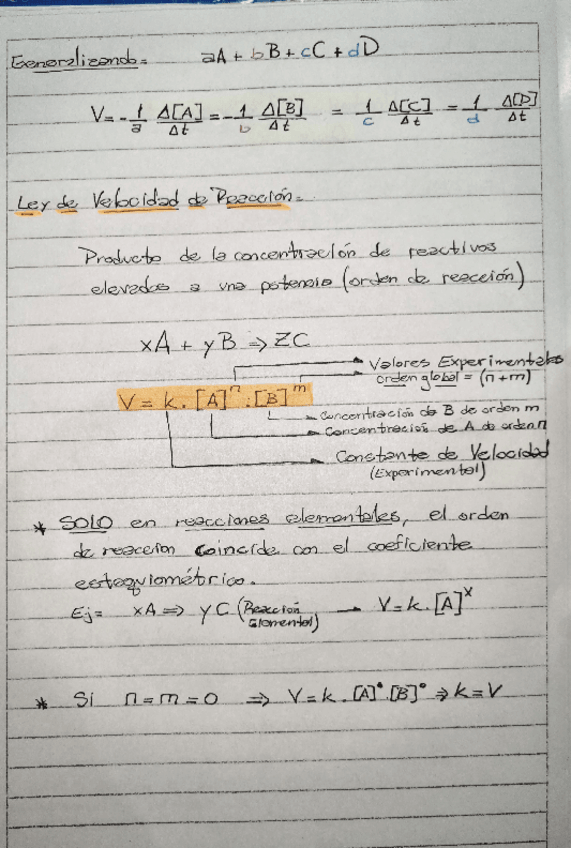 Generalizando= aA + bB + cC + dD
V = -1/a Δ[A]/Δt = -1/b Δ[B]/Δt = 1/c Δ[C]/Δt = 1/d Δ[D]/Δt
Ley de Velocidad de Reacción=
Producto de la concentración de reactivos
elevados a una potencia (orden de reacción)
xA + yB ⇒ ZC
Valores Experimentales
orden global = (n+m)
V = k . [A]ⁿ . [B]ᵐ
Concentración de B de orden m
Concentración de A de orden n
Constante de Velocidad
(Experimental)
* SOLO en reacciones elementales, el orden
de reacción coincide con el coeficiente
estequiométrico.
Ej= xA ⇒ yC (Reacción Elemental) → V = k . [A]ˣ
* Si n = m = 0 ⇒ V = k . [A]⁰ . [B]⁰ ⇒ k = V